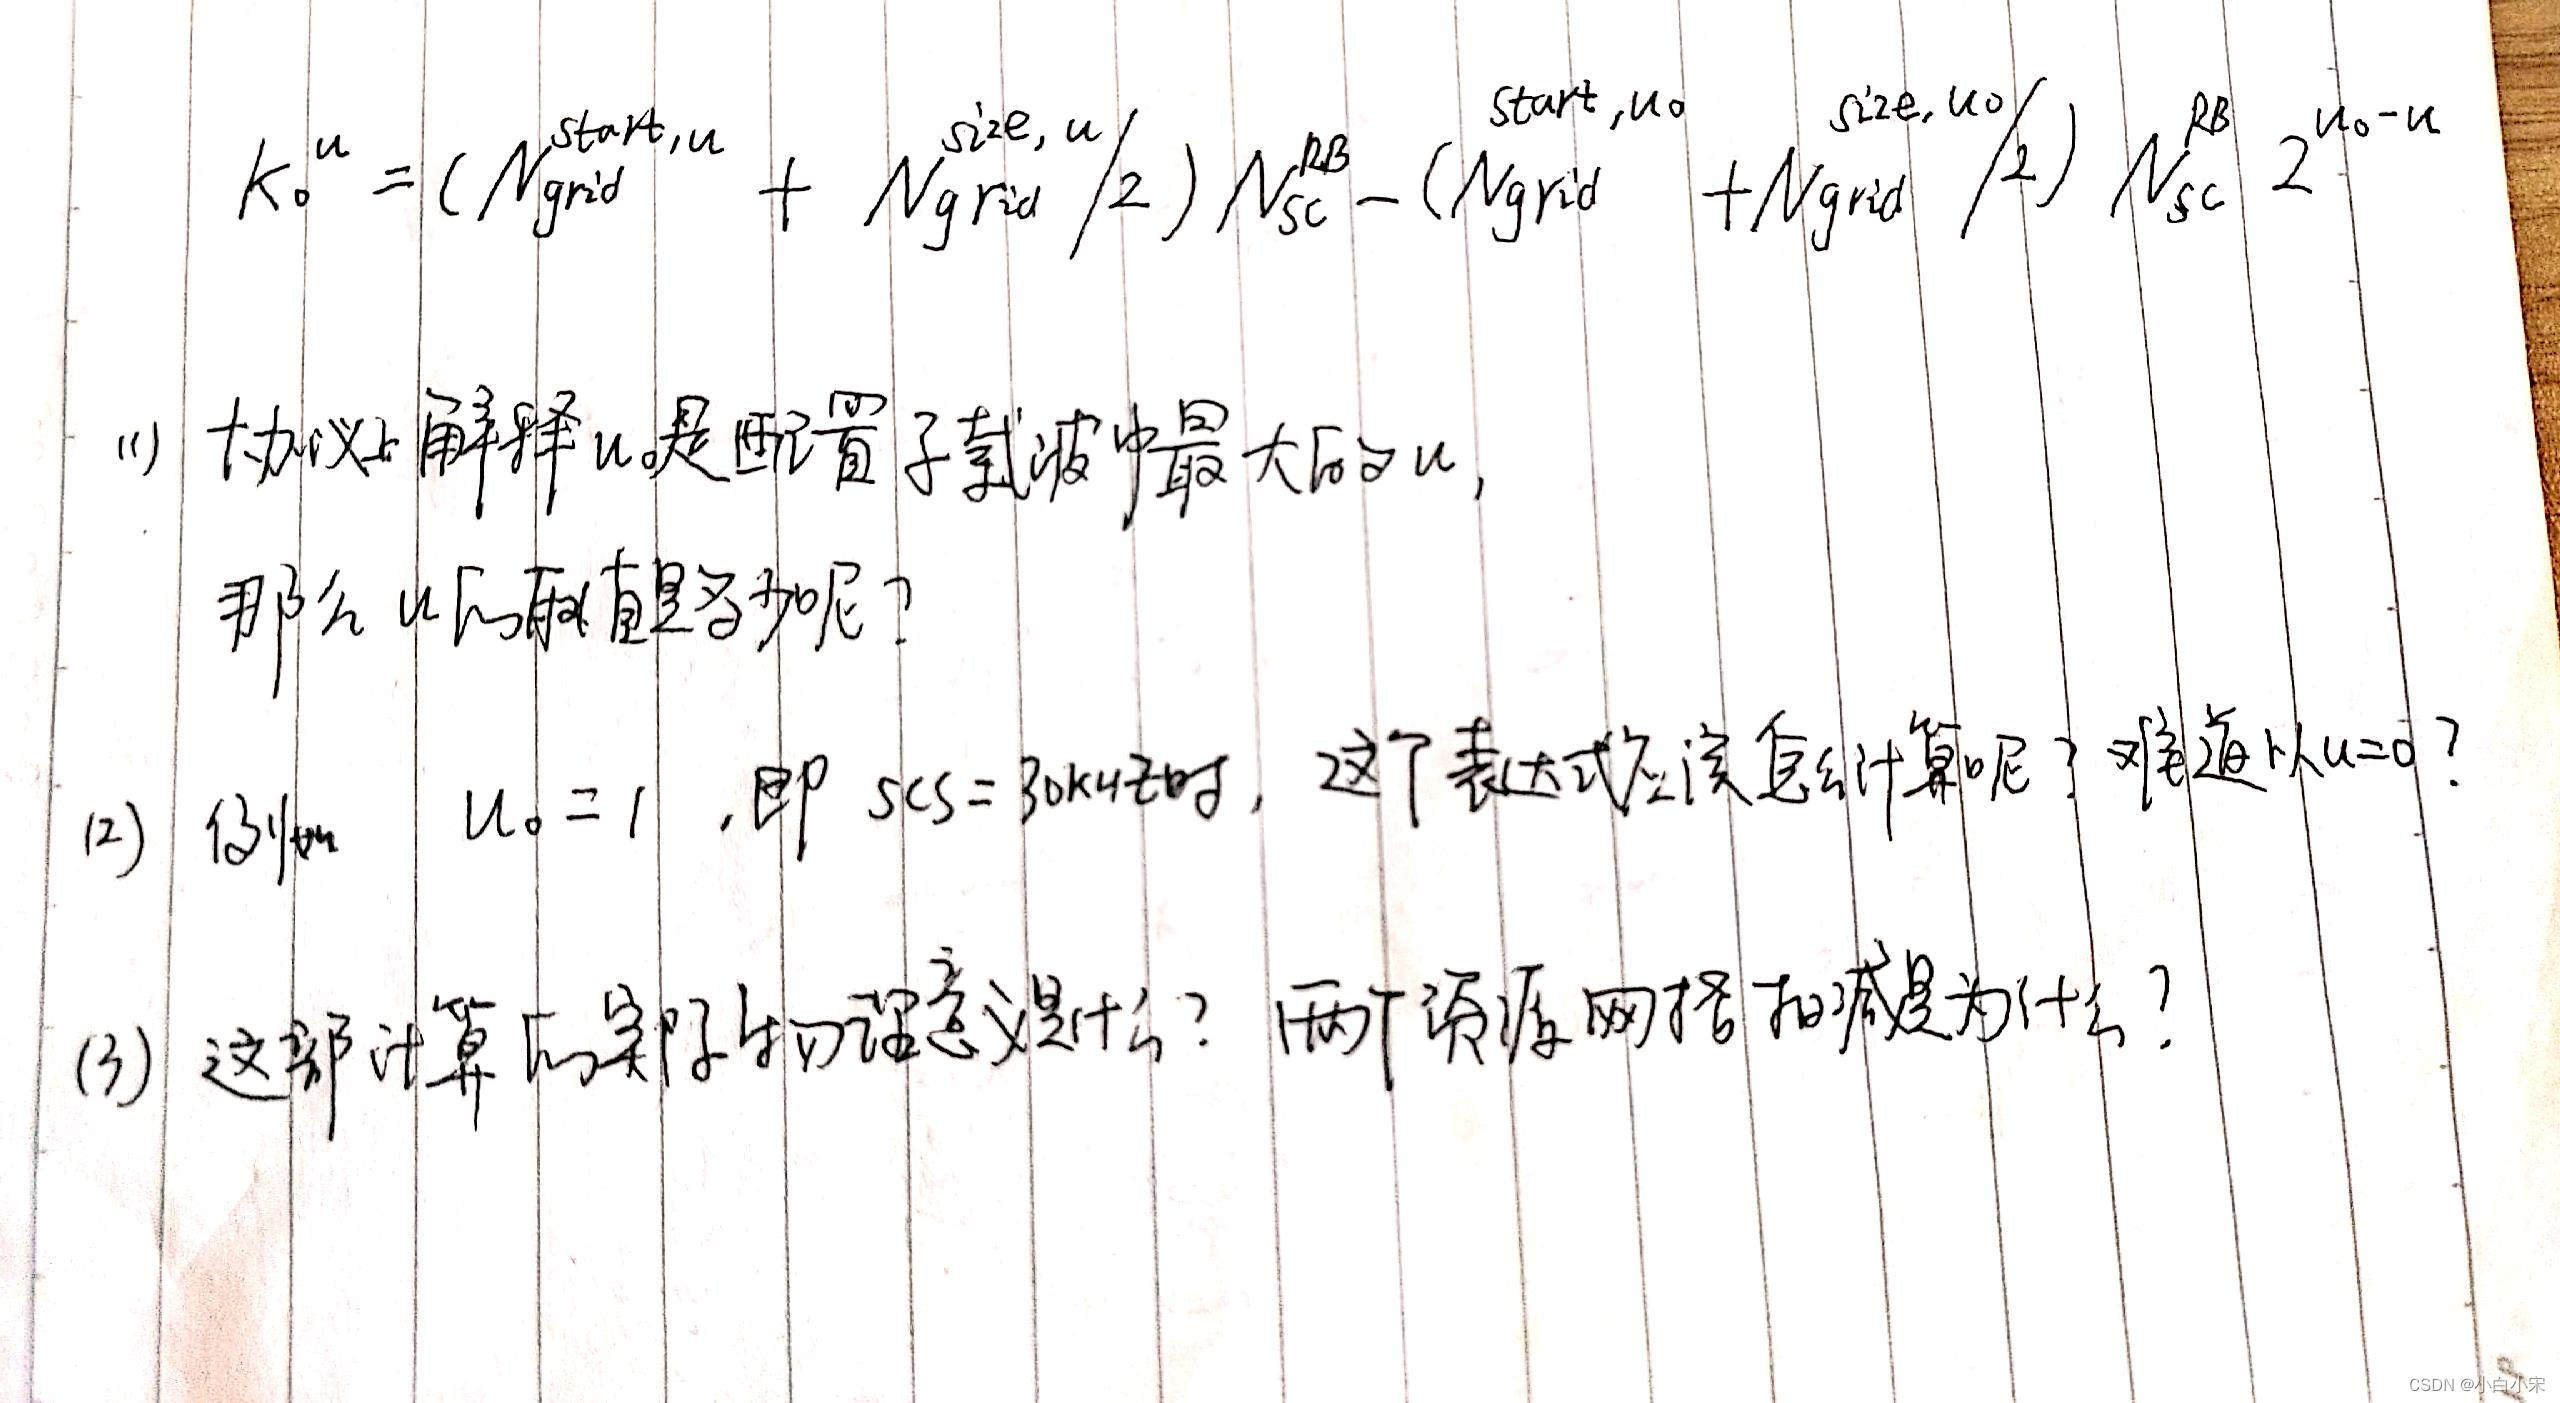 K₀ᵘ = (N_grid^{start,u} + N_grid^{size,u}/2) N_sc^{RB} - (N_grid^{start,u₀} + N_grid^{size,u₀}/2) N_sc^{RB} 2^{u₀-u}
(1) 协议上解释u₀是配置子载波中最大的u,
那么u的取值是多少呢?
(2) 例如 u₀=1 ,即 SCS=30KHz时, 这个表达式应该怎么计算呢? 难道以u=0?
(3) 这部计算的实际物理意义是什么? 两个资源网格相减是为什么?
CSDN @小白小宋